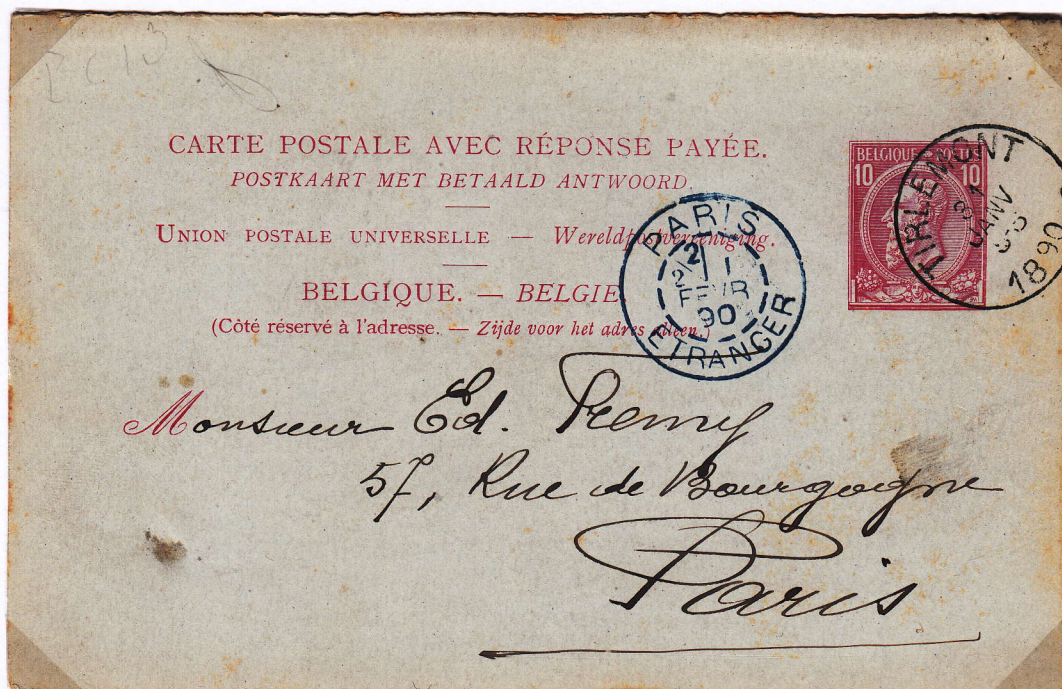 CARTE POSTALE AVEC RÉPONSE PAYÉE.
POSTKAART MET BETAALD ANTWOORD.
UNION POSTALE UNIVERSELLE — Wereldpostvereeniging.
BELGIQUE. — BELGIE.
(Côté réservé à l'adresse. — Zijde voor het adres alleen.)
BELGIQUE POSTES
10 10
TIRLEMONT
JANV
1890
PARIS
2
FEVR
90
ETRANGER
Monsieur Ed. Remy
57, Rue de Bourgogne
Paris